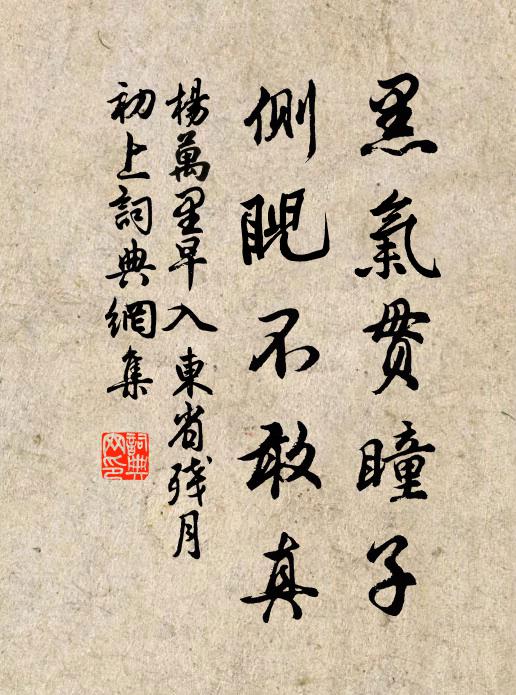 黑氣貫瞳子
側睨不敢真
楊萬里早入東省殘月
初上詞典網集
詞典
网印